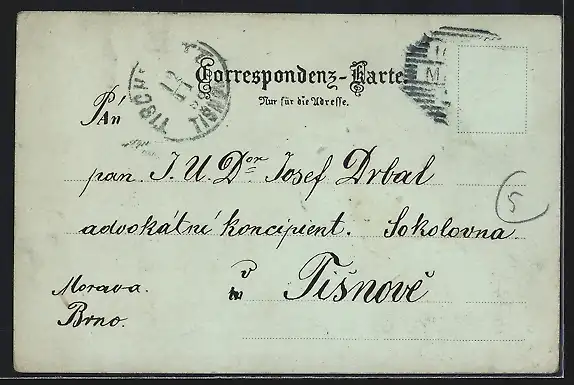 Correspondenz-Karte.
Nur für die Adresse.
Pán
pan. J. U. Dor Josef Drbal
advokátní koncipient. Sokolovna.
5
v Tišnově
Morava.
Brno.